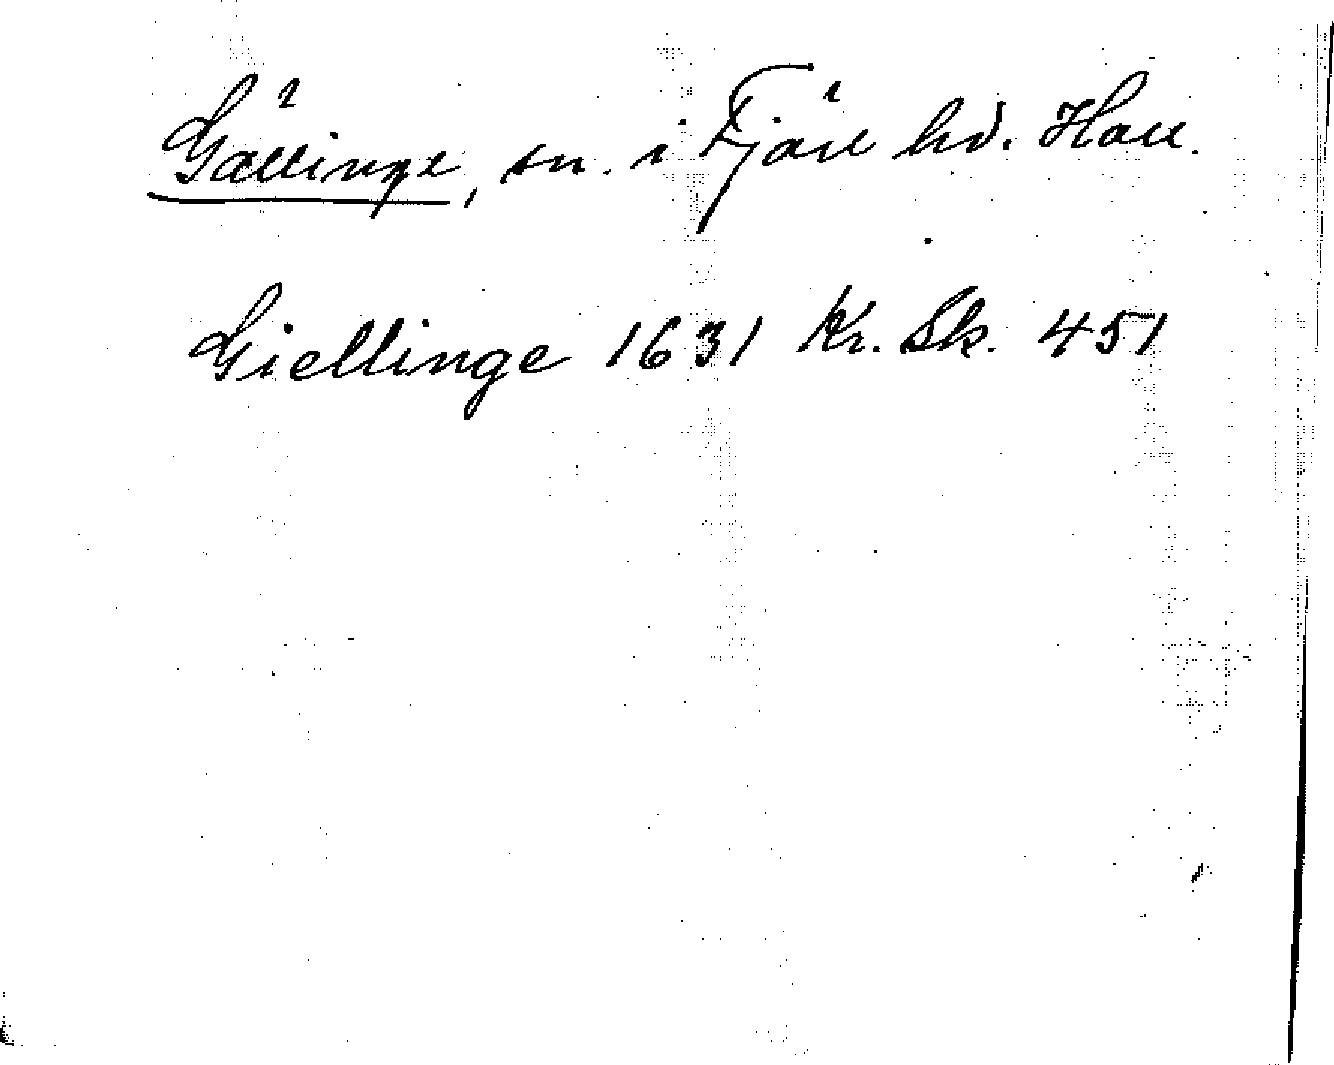 Gällinge, sn. i Fjäre hd. Hall.
Giellinge 1631 Kr. Sk. 451